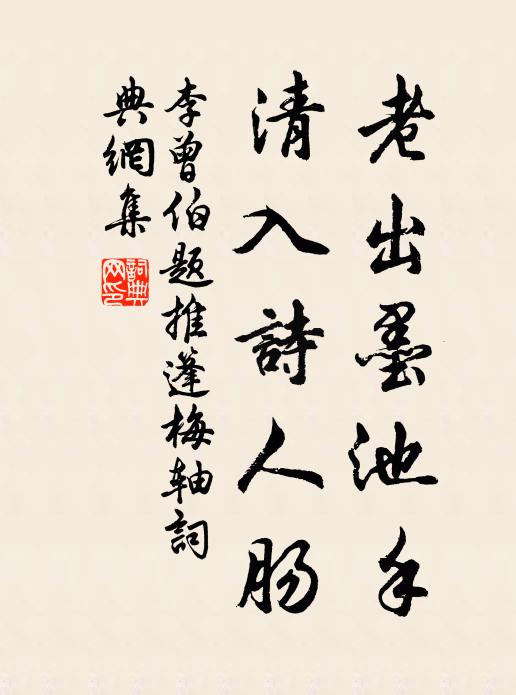 老出墨池手
清入詩人肠
李曾伯題推蓬梅轴詞
典網集
詞典
网印